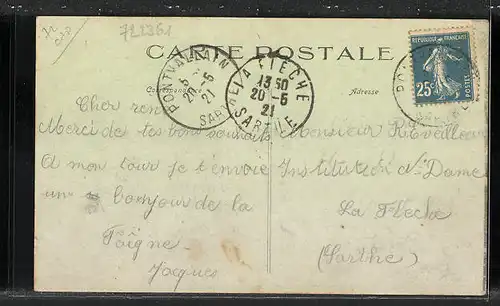 721361
CARTE POSTALE
Correspondance
Adresse
REPUBLIQUE FRANÇAISE
25c
POSTES
PONTVALLAIN
20 -5
21
SARTHE
LA FLECHE
13 30
20 -5
21
SARTHE
Cher
Merci de tes bons souhaits
A mon tour je t'envoie
un bonjour de la
Faigne
Jacques
Monsieur R. Eveilleau
Institut de N. Dame
La Flèche
(Sarthe)